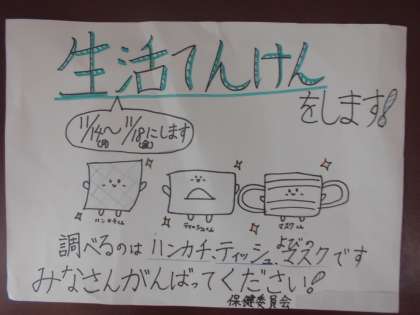 生活てんけん
をします!
11/14~11/18にします
(月) (金)
ハンカチくん ティッシュくん マスクくん
調べるのはハンカチ、ティッシュ、よびのマスクです
みなさんがんばってください!
保健委員会